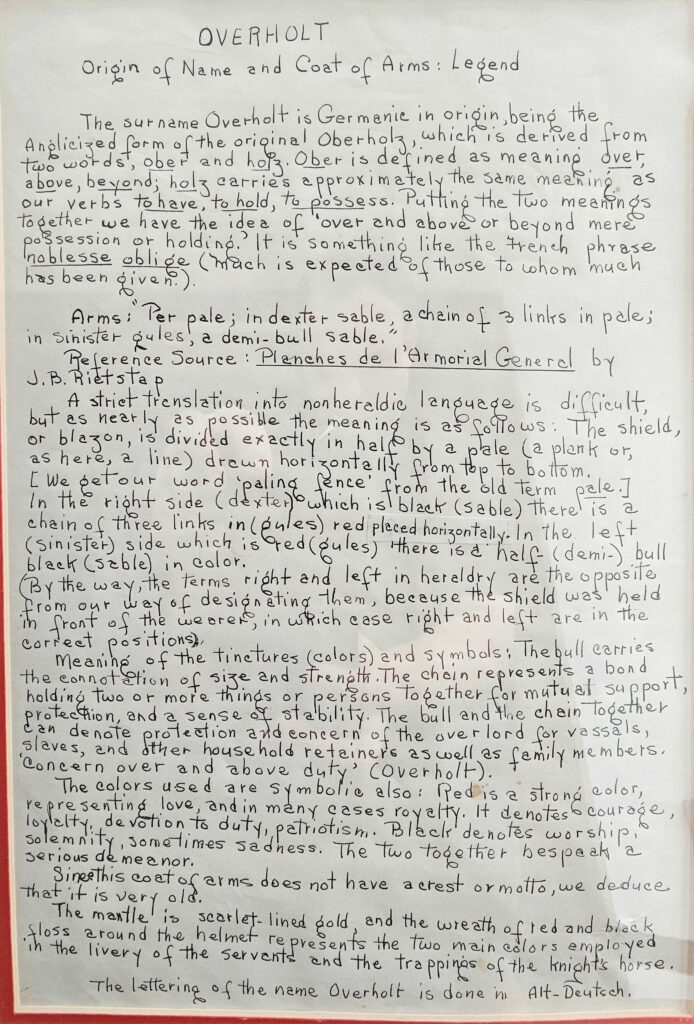 OVERHOLT
Origin of Name and Coat of Arms: Legend
The surname Overholt is Germanic in origin, being the
Anglicized form of the original Oberholz, which is derived from
two words, ober and holz. Ober is defined as meaning over,
above, beyond; holz carries approximately the same meaning as
our verbs to have, to hold, to possess. Putting the two meanings
together we have the idea of 'over and above or beyond mere
possession or holding.' It is something like the French phrase
noblesse oblige (much is expected of those to whom much
has been given.).
Arms: "Per pale; in dexter sable, a chain of 3 links in pale;
in sinister gules, a demi-bull sable."
Reference Source: Planches de l'Armorial General by
J.B. Rietstap
A strict translation into nonheraldic language is difficult,
but as nearly as possible the meaning is as follows: The shield,
or blazon, is divided exactly in half by a pale (a plank or,
as here, a line) drawn horizontally from top to bottom.
[We get our word 'paling fence' from the old term pale.]
In the right side (dexter) which is black (sable) there is a
chain of three links in (gules) red placed horizontally. In the left
(sinister) side which is red (gules) there is a half- (demi-) bull
black (sable) in color.
(By the way, the terms right and left in heraldry are the opposite
from our way of designating them, because the shield was held
in front of the wearer, in which case right and left are in the
correct positions).
Meaning of the tinctures (colors) and symbols: The bull carries
the connotation of size and strength. The chain represents a bond
holding two or more things or persons together for mutual support,
protection, and a sense of stability. The bull and the chain together
can denote protection and concern of the overlord for vassals,
slaves, and other household retainers as well as family members.
'Concern over and above duty' (Overholt).
The colors used are symbolic also: Red is a strong color,
representing love, and in many cases royalty. It denotes courage,
loyalty, devotion to duty, patriotism. Black denotes worship,
solemnity, sometimes sadness. The two together bespeak a
serious demeanor.
Since this coat of arms does not have a crest or motto, we deduce
that it is very old.
The mantle is scarlet-lined gold, and the wreath of red and black
floss around the helmet represents the two main colors employed
in the livery of the servants and the trappings of the knight's horse.
The lettering of the name Overholt is done in Alt-Deutsch.